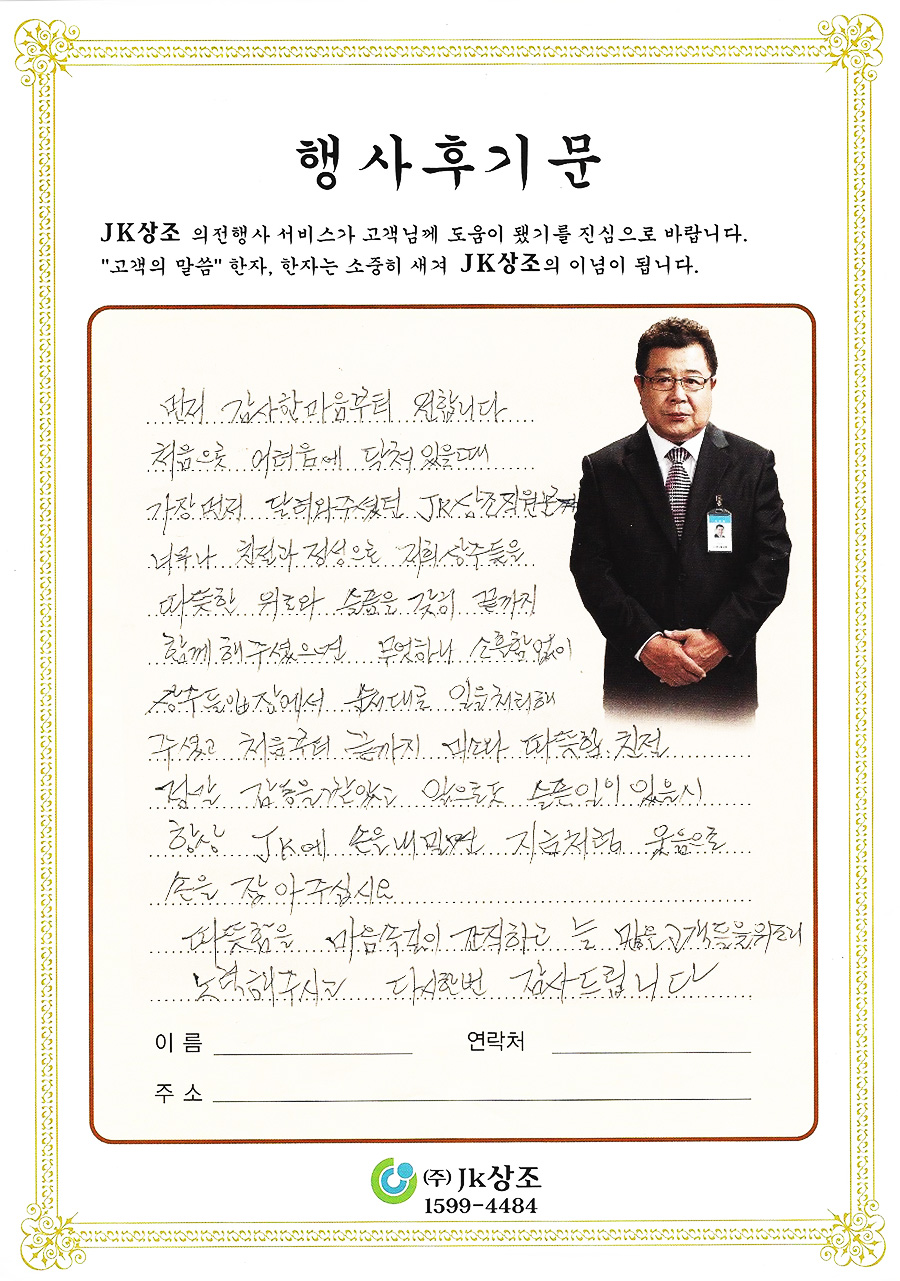 행사후기문
JK상조 의전행사 서비스가 고객님께 도움이 됐기를 진심으로 바랍니다.
"고객의 말씀" 한자, 한자는 소중히 새겨 JK상조의 이념이 됩니다.
먼저 감사한마음부터 전합니다
처음으로 어려움에 닥쳐있을때
가장먼저 달려와주셨던 JK상조직원분께
너무나 친절과 정성으로 저희상주들을
따뜻한 위로와 슬픔을 같이 끝까지
함께해주셨으면 무엇하나 소홀함없이
상주들입장에서 순서대로 일을처리해
주셨고 처음부터 끝까지 미소와 따뜻함 친절
정말 감동을 받았고 앞으로도 슬픈일이 있을시
항상 JK에 손을내밀면 지금처럼 웃음으로
손을 잡아주십시요
따뜻함을 마음속깊이 간직하고 늘 많은고객들을위로
노력해주시고 다시한번 감사드립니다
이름 연락처
주소
(주) Jk상조
1599-4484